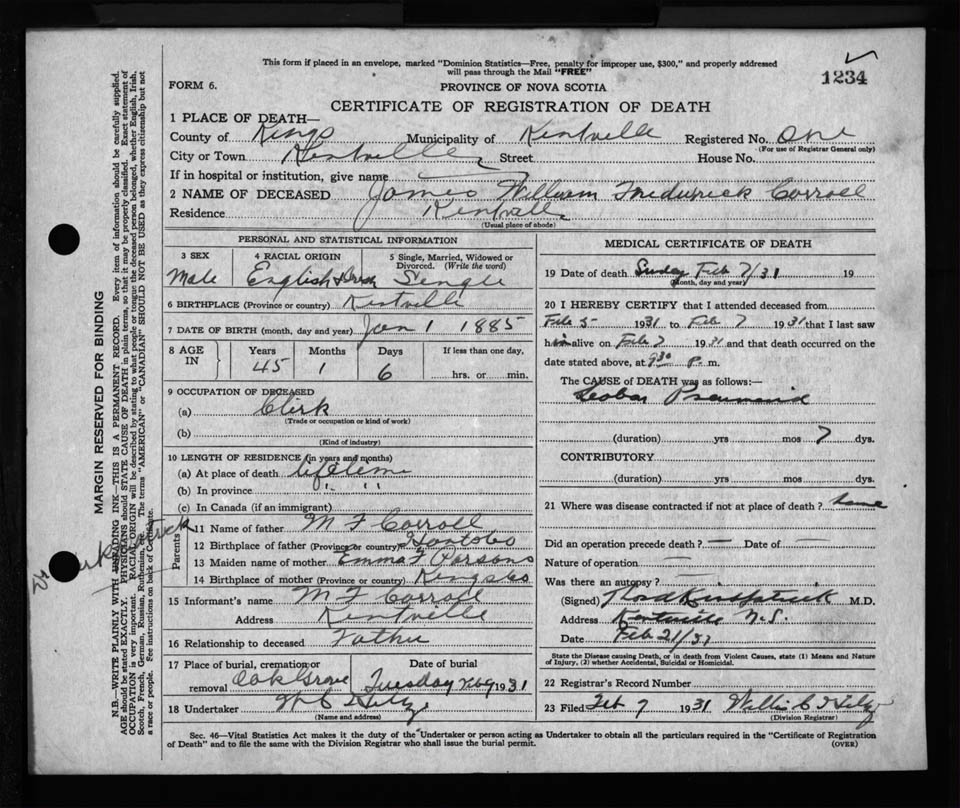 This form if placed in an envelope, marked "Dominion Statistics—Free, penalty for improper use, $300," and properly addressed
will pass through the Mail "FREE"
1234
FORM 6.
PROVINCE OF NOVA SCOTIA
CERTIFICATE OF REGISTRATION OF DEATH
1 PLACE OF DEATH—
County of Kings Municipality of Kentville Registered No. One
(For use of Registrar General only)
City or Town Kentville Street House No.
If in hospital or institution, give name
2 NAME OF DECEASED James William Frederick Corroll
Residence Kentville
(Usual place of abode)
PERSONAL AND STATISTICAL INFORMATION
3 SEX 4 RACIAL ORIGIN 5 Single, Married, Widowed or Divorced. (Write the word)
Male English & Irish Single
6 BIRTHPLACE (Province or country) Kentville
7 DATE OF BIRTH (month, day and year) Jan 1 1885
8 AGE IN Years Months Days If less than one day,
45 1 6 hrs. or min.
9 OCCUPATION OF DECEASED
(a) Clerk
(Trade or occupation or kind of work)
(b)
(Kind of industry)
10 LENGTH OF RESIDENCE (in years and months)
(a) At place of death lifetime
(b) In province " "
(c) In Canada (if an immigrant)
Parents
11 Name of father M F Corroll
12 Birthplace of father (Province or country)
13 Maiden name of mother Emma F Parsons
14 Birthplace of mother (Province or country) Kings Co
15 Informant's name M F Corroll
Address Kentville
16 Relationship to deceased Father
17 Place of burial, cremation or removal Oak Grove Date of burial Tuesday Feb 9 1931
18 Undertaker
(Name and address)
MEDICAL CERTIFICATE OF DEATH
19 Date of death Sunday Feb 7/31 19
(Month, day and year)
20 I HEREBY CERTIFY that I attended deceased from
Feb 5 1931 to Feb 7 1931 that I last saw
him alive on Feb 7 1931 and that death occurred on the
date stated above, at 9 30 P. m.
The CAUSE of DEATH was as follows:—
Lobar Pneumonia
(duration) yrs mos 7 dys.
CONTRIBUTORY
(duration) yrs mos dys.
21 Where was disease contracted if not at place of death? home
Did an operation precede death? — Date of —
Nature of operation —
Was there an autopsy? —
(Signed) M.D.
Address Kentville N.S.
Date Feb 21/31
State the Disease causing Death, or in death from Violent Causes, state (1) Means and Nature
of Injury, (2) whether Accidental, Suicidal or Homicidal.
22 Registrar's Record Number
23 Filed Feb 7 1931
(Division Registrar)
Sec. 46—Vital Statistics Act makes it the duty of the Undertaker or person acting as Undertaker to obtain all the particulars required in the "Certificate of Registration
of Death" and to file the same with the Division Registrar who shall issue the burial permit.
(OVER)
MARGIN RESERVED FOR BINDING
N.B.—WRITE PLAINLY WITH UNFADING INK—THIS IS A PERMANENT RECORD. Every item of information should be carefully supplied.
AGE should be stated EXACTLY. PHYSICIANS should STATE CAUSE OF DEATH in plain terms, so that it may be properly classified. Exact statement of
OCCUPATION is very important. RACIAL ORIGIN will be described by stating to what people or tongue the deceased person belonged, whether English, Irish,
Scotch, French, German, Russian, Ruthenian, etc. The terms "AMERICAN" or "CANADIAN" SHOULD NOT BE USED as they express citizenship but not
a race or people. See instructions on back of Certificate.